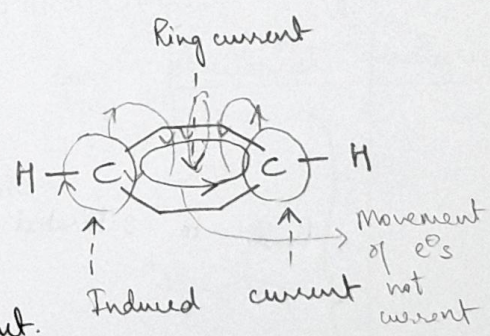 Ring current
H C C H
Movement
of e⊖s
not
current
Induced current
ut.